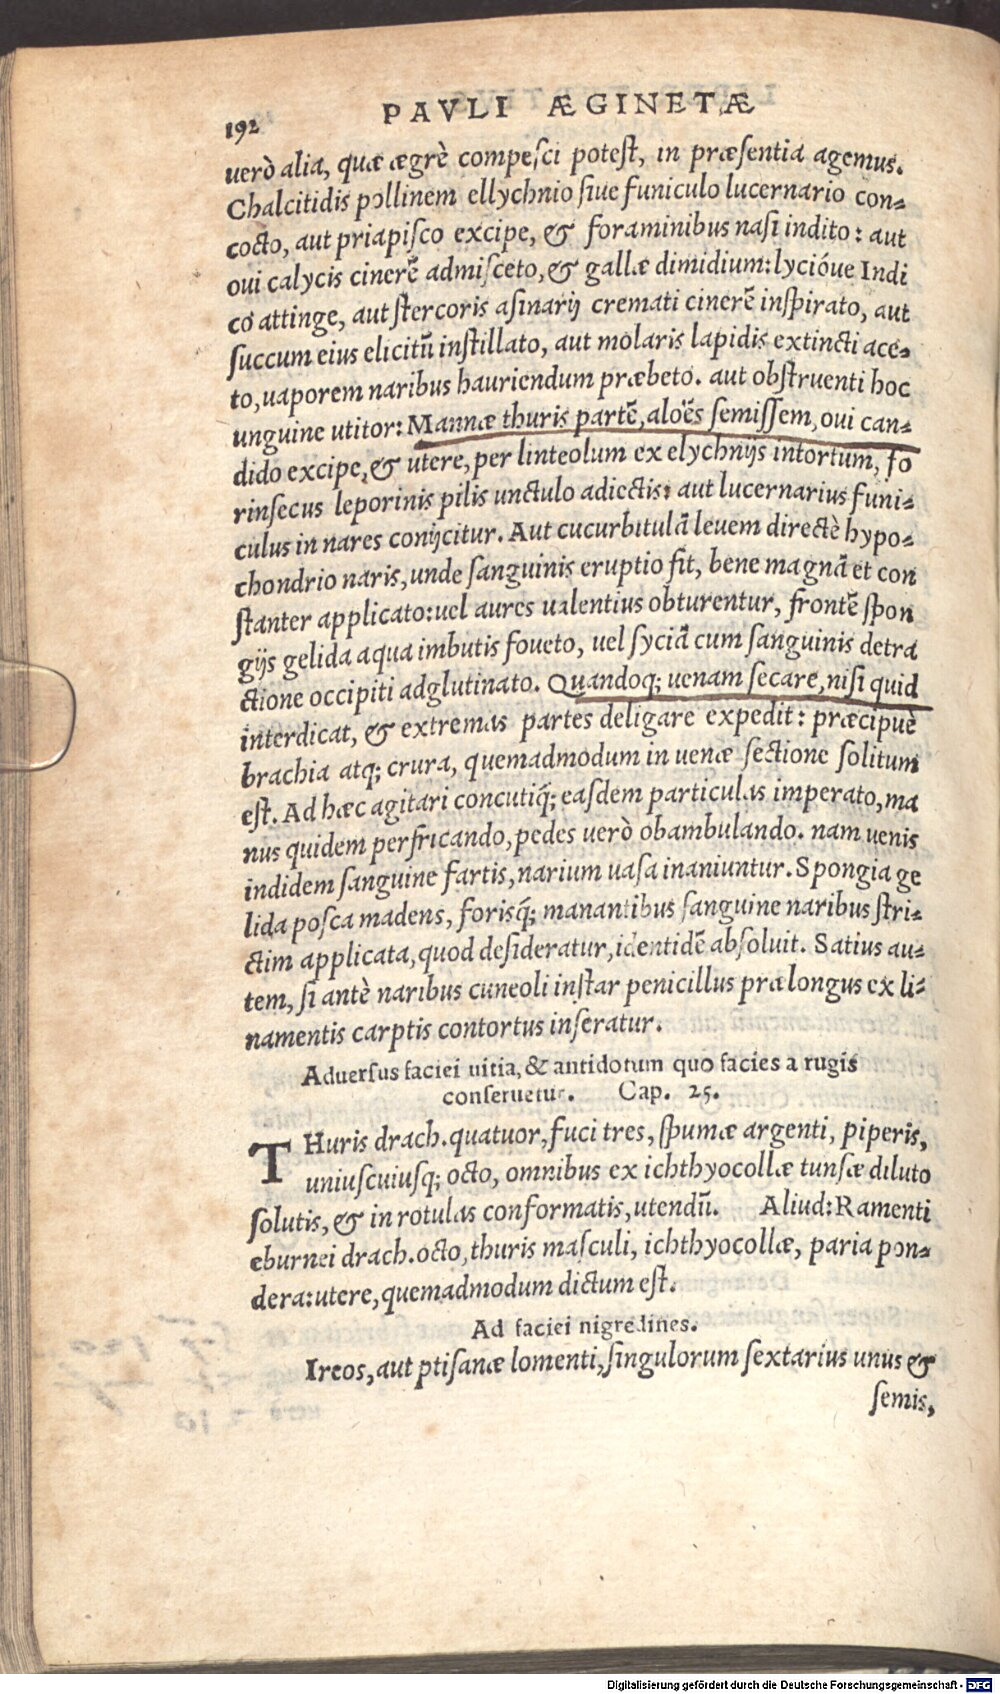 192
PAVLI ÆGINETÆ
uerò alia, quæ ægrè compesci potest, in præsentia agemus.
Chalcitidis pollinem ellychnio siue funiculo lucernario con⸗
cocto, aut priapisco excipe, & foraminibus nasi indito: aut
oui calycis cinerē admisceto, & gallæ dimidium: lycióue Indi
co attinge, aut stercoris asinarij cremati cinerē inspirato, aut
succum eius elicitū instillato, aut molaris lapidis extincti ace⸗
to, uaporem naribus hauriendum præbeto. aut obstruenti hoc
unguine utitor: Mannæ thuris partē, aloës semissem, oui can⸗
dido excipe, & utere, per linteolum ex elychnijs intortum, fo
rinsecus leporinis pilis unctulo adiectis: aut lucernarius funi⸗
culus in nares conijcitur. Aut cucurbitulā leuem directè hypo⸗
chondrio naris, unde sanguinis eruptio fit, bene magnā et con
stanter applicato: uel aures ualentius obturentur, frontē spon
gijs gelida aqua imbutis foueto, uel syciā cum sanguinis detra
ctione occipiti adglutinato. Quandoq; uenam secare, nisi quid
interdicat, & extremas partes deligare expedit: præcipuè
brachia atq; crura, quemadmodum in uenæ sectione solitum
est. Ad hæc agitari concutiq́; easdem particulas imperato, ma
nus quidem perfricando, pedes uerò obambulando. nam uenis
indidem sanguine fartis, narium uasa inaniuntur. Spongia ge
lida posca madens, forisq́; manantibus sanguine naribus stri⸗
ctim applicata, quod desideratur, identidē absoluit. Satius au⸗
tem, si antè naribus cuneoli instar penicillus prælongus ex li⸗
namentis carptis contortus inseratur.
Aduersus faciei uitia, & antidotum quo facies a rugis
conseruetur. Cap. 25.
THuris drach. quatuor, fuci tres, spumæ argenti, piperis,
uniuscuiusq; octo, omnibus ex ichthyocollæ tunsæ diluto
solutis, & in rotulas conformatis, utendū. Aliud: Ramenti
eburnei drach. octo, thuris masculi, ichthyocollæ, paria pon⸗
dera: utere, quemadmodum dictum est.
Ad faciei nigredines.
Ireos, aut ptisanæ lomenti, singulorum sextarius unus &
semis,
Digitalisierung gefördert durch die Deutsche Forschungsgemeinschaft - DFG